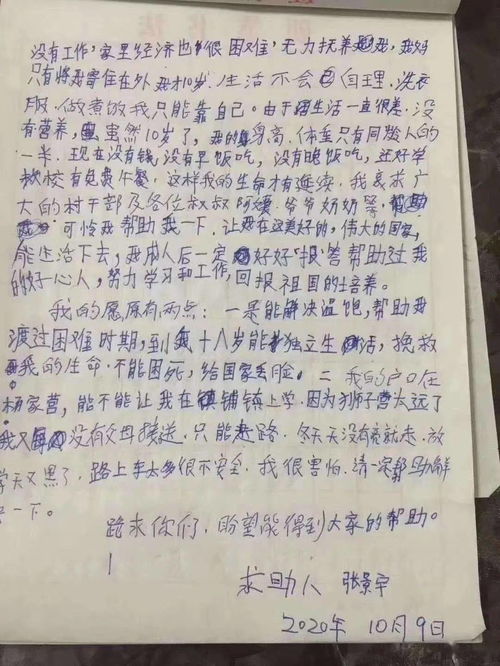 没有工作，家里经济也很困难，无力抚养我，我妈
只有将我寄住在外，我才10岁，生活不会自理，洗衣
服、做煮饭我只能靠自己。由于生活一直很差，没
有营养，虽然10岁了，我的身高、体重只有同龄人的
一半，现在没有钱，没有早饭吃，没有晚饭吃，还好学
校有免费午餐，这样我的生命才有延续，我哀求广
大的村干部及各位叔叔阿姨、爷爷奶奶等，
可怜我帮助我一下，让我在这美好的，伟大的国家，
能生活下去，我成人后一定好好报答帮助过我
的好心人，努力学习和工作，回报祖国的培养。
我的愿原有两点：一是能解决温饱，帮助我
渡过困难时期，到我十八岁能独立生活，挽救
我的生命，不能困死，给国家丢脸。二我的户口在
杨家营，能不能让我在镇铺镇上学，因为狮子营太远了
我又没有父母接送，只能走路，冬天天没有亮就走，放
学天又黑了，路上车太多很不安全，我很害怕，请一定帮助解
一下。
跪求你们，盼望能得到大家的帮助。
求助人 张景宇
2020年 10月9日